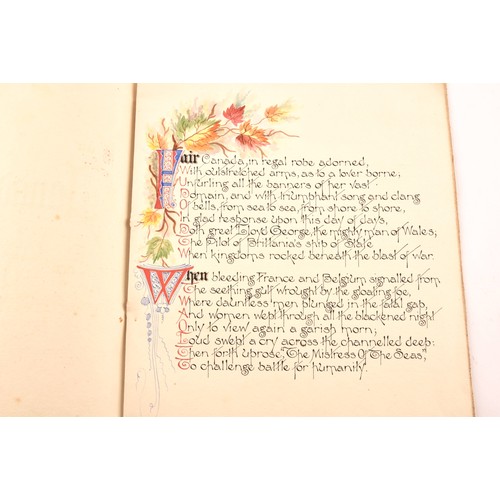 Fair Canada, in regal robe adorned,
With outstretched arms, as to a lover borne;
Unfurling all the banners of her vast
Domain, and with triumphant song and clang
Of bells, from sea to sea, from shore to shore,
In glad response upon this day of days,
Doth greet Lloyd George, the mighty man of Wales;
The Pilot of Brittania's ship of State
When kingdoms rocked beneath the blast of war.
When bleeding France and Belgium signalled from
The seething gulf wrought by the gloating foe,
Where dauntless men plunged in the fatal gap,
And women wept through all the blackened night
Only to view again a garish morn;
Loud swept a cry across the channelled deep:
Then forth uprose, "The Mistress Of The Seas,"
To challenge battle for humanity.